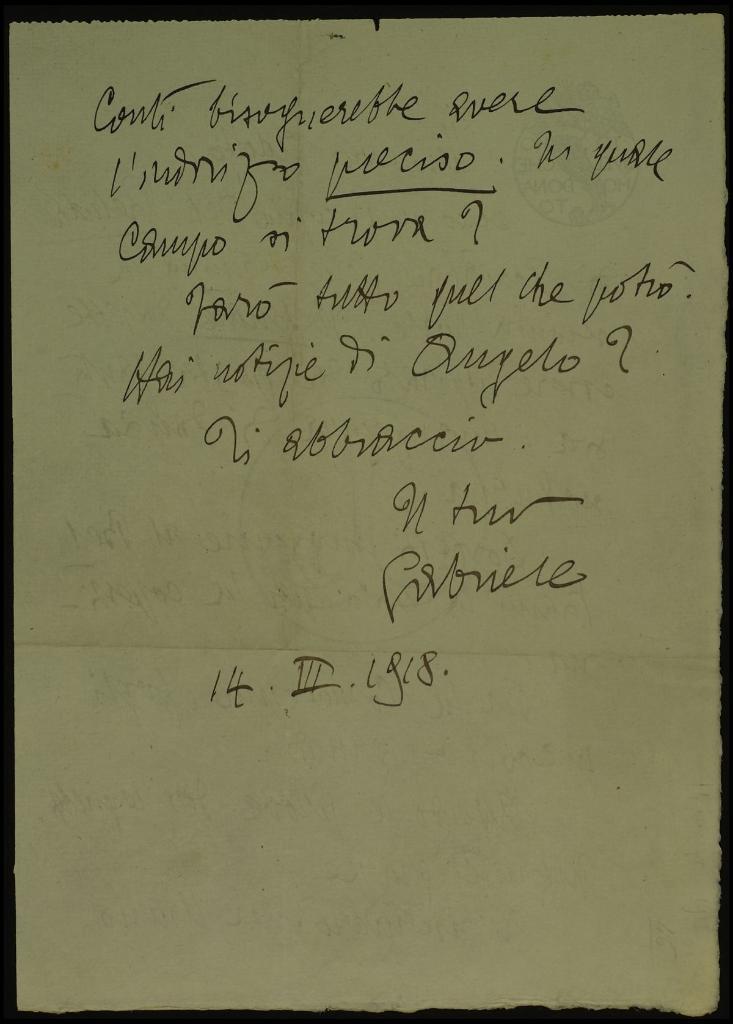 Conti bisognerebbe avere
l'indirizzo preciso. In quale
campo si trova?
Farò tutto quel che potrò.
Hai notizie di Angelo?
Ti abbraccio.
Il tuo
Gabriele
14. III. 1918.